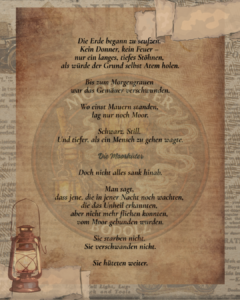 Die Erde begann zu seufzen.
Kein Donner, kein Feuer –
nur ein langes, tiefes Stöhnen,
als würde der Grund selbst Atem holen.
Bis zum Morgengrauen
war das Gemäuer verschwunden.
Wo einst Mauern standen,
lag nur noch Moor.
Schwarz. Still.
Und tiefer, als ein Mensch zu gehen wagte.
Die Moorhüter
Doch nicht alles sank hinab.
Man sagt,
dass jene, die in jener Nacht noch wachten,
die das Unheil erkannten,
aber nicht mehr fliehen konnten,
vom Moor gebunden wurden.
Sie starben nicht.
Sie verschwanden nicht.
Sie hüteten weiter.